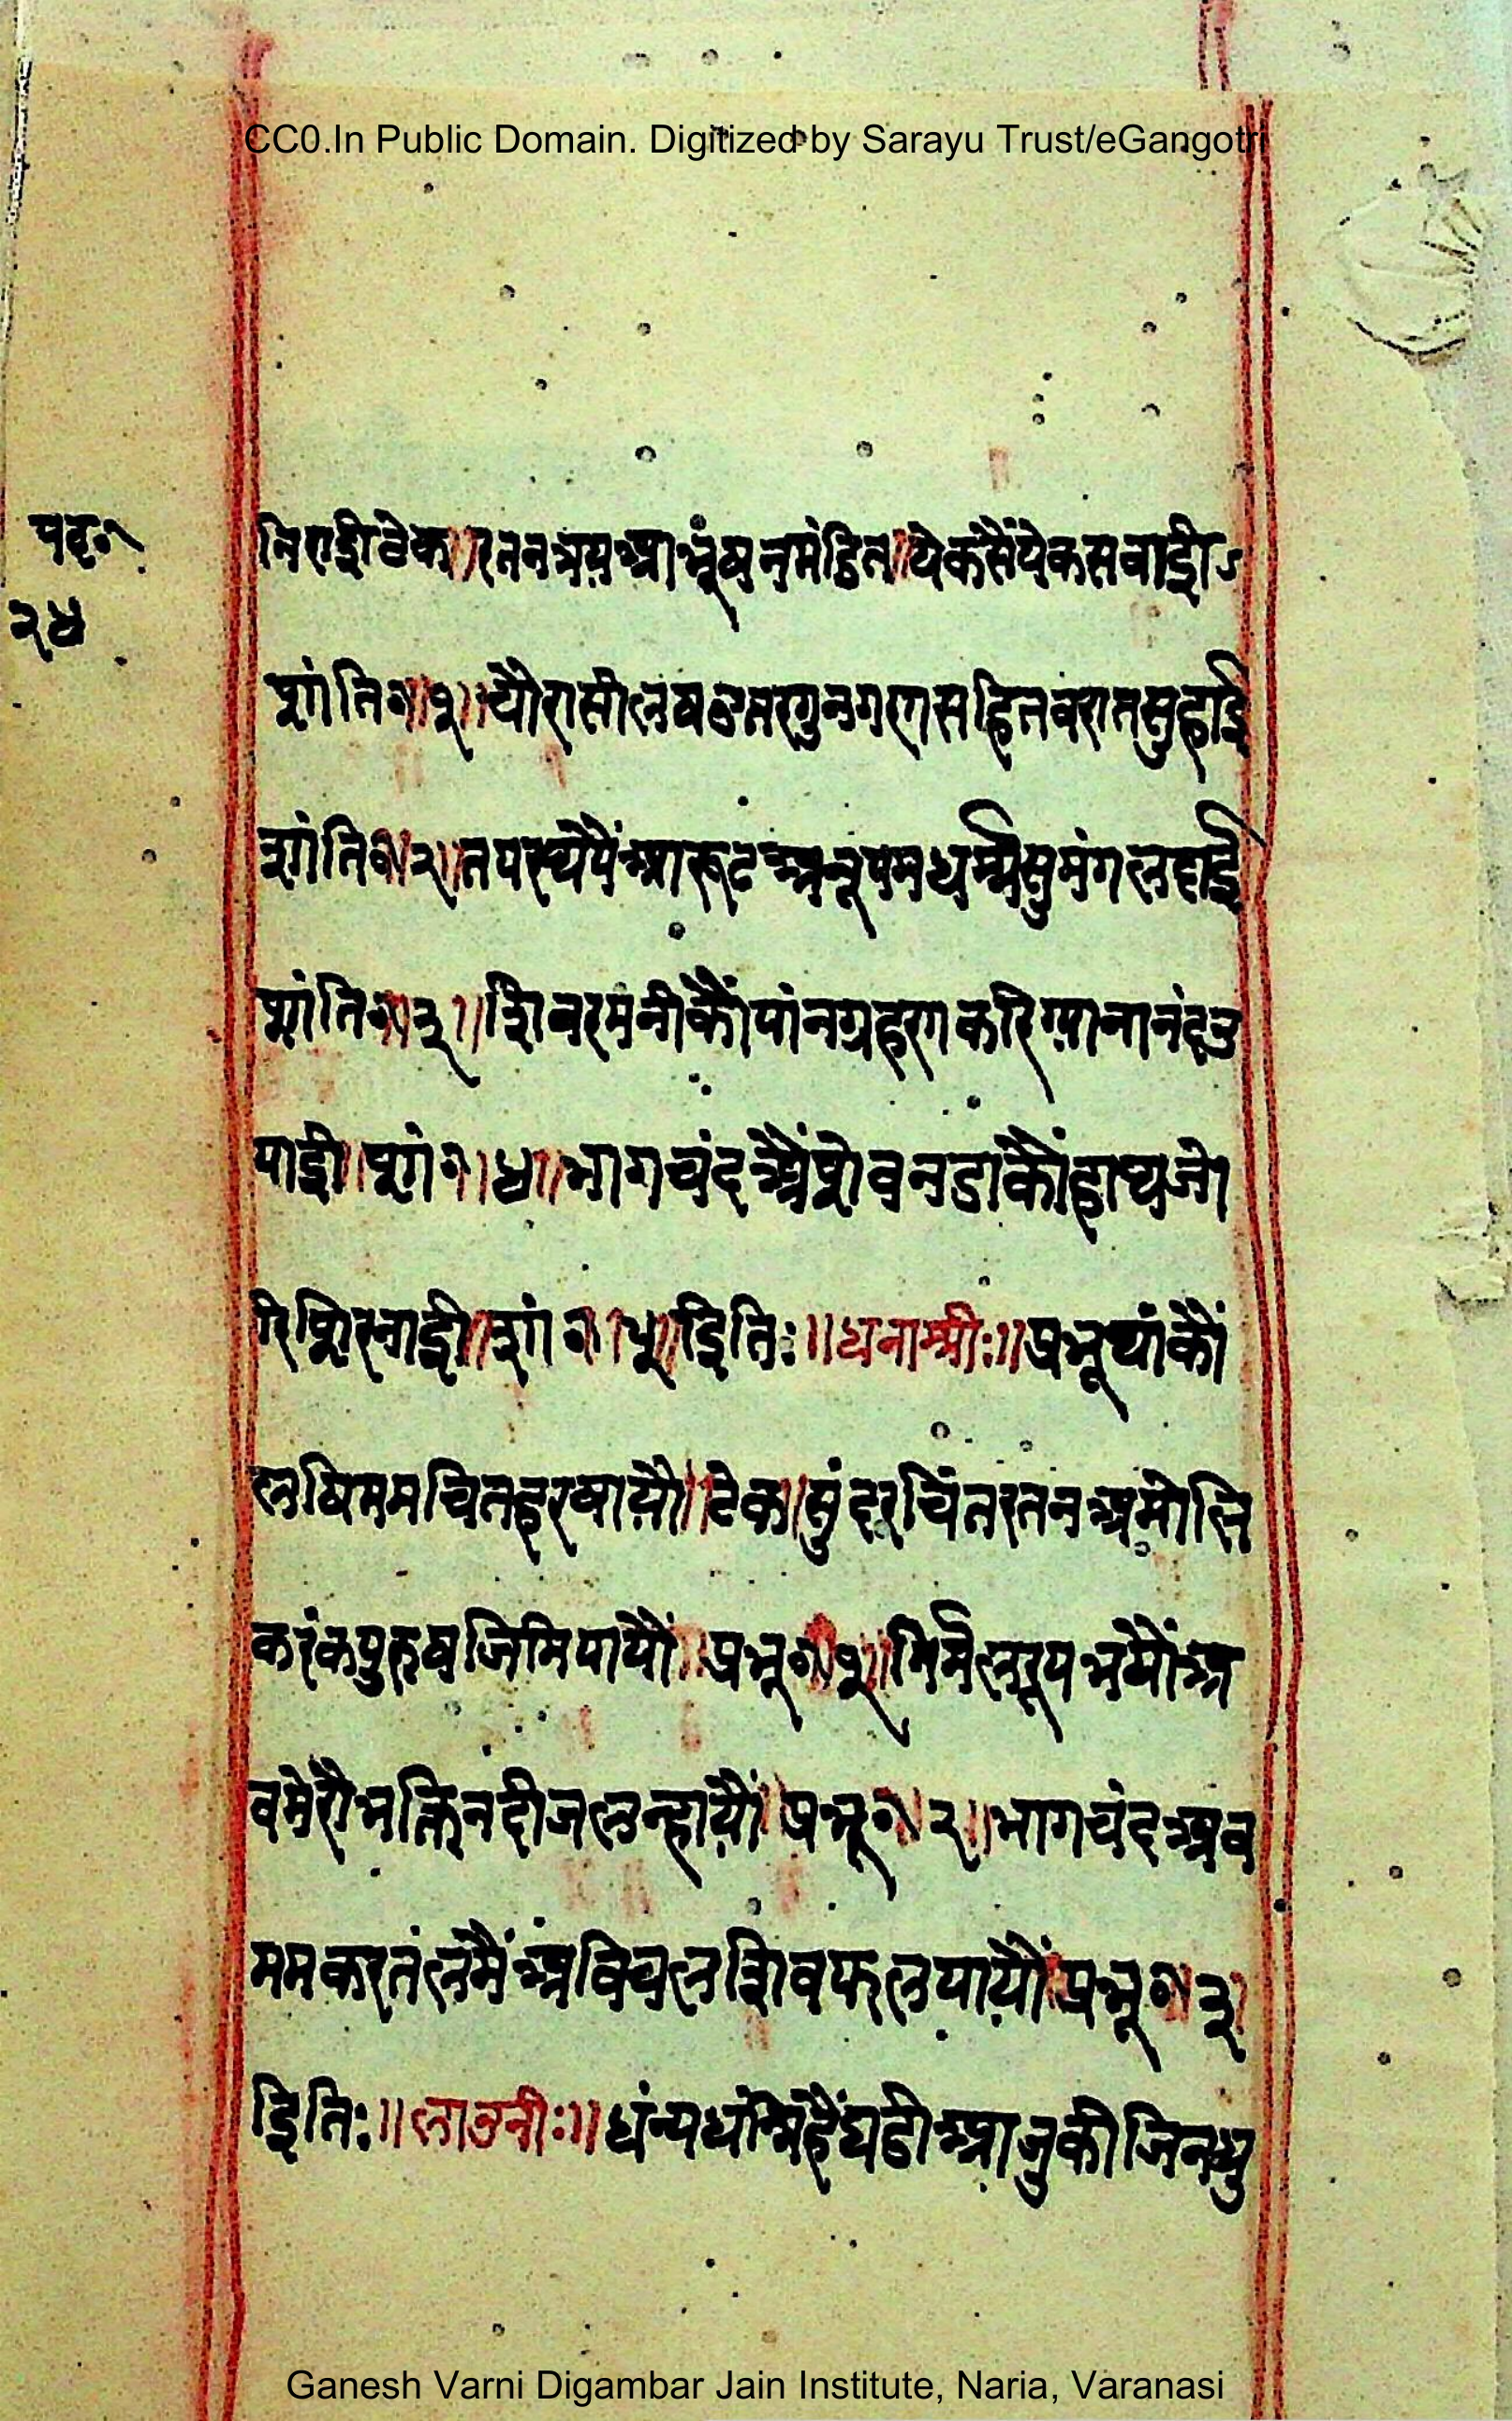 CC0.In Public Domain. Digitized by Sarayu Trust/eGangotri
पद॰
२४
निराई टेक॥ रतनत्रय आभूंषनमंडित॥ येकसैंयेकसवाई
शांति॰॥१॥ चौरासीलषउत्तरगुनगणसहितवरातसुहाई
शांति॰॥२॥ तपरथपैंआरूढअनूपमधर्म्मसुमंगलदाई
शांति॰॥३॥ शिवरमनीकौंपांनग्रहणकरिग्यानानंदउ
पाई॥ शां॰॥४॥ भागचंदअैंसेवनडाकौंहाथजो
रिसिरनाई॥ शां॰॥५॥ इति:॥ धनाश्री:॥ प्रभूथांकौं
लषिममचितहरषायौ॥ टेक॥ सुंदरचिंतरतनअमोलि
करंकपुरुषजिमिपायौं॥ प्रभू॰॥१॥ निर्मलरूपभयौंअ
वमेरौभक्तिनदीजलन्हायौं॥ प्रभू॰॥२॥ भागचंदअव
ममकरतंलमैंअविचलशिवफलपायौं॥ प्रभू॰॥३॥
इति:॥ लाउनी:॥ धंन्यधंन्यिहैंघडीआजुकीजिनधु
Ganesh Varni Digambar Jain Institute, Naria, Varanasi